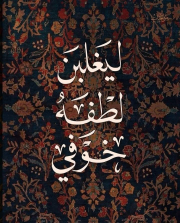 ليَغلبن
لطفهُ
خَوْفي